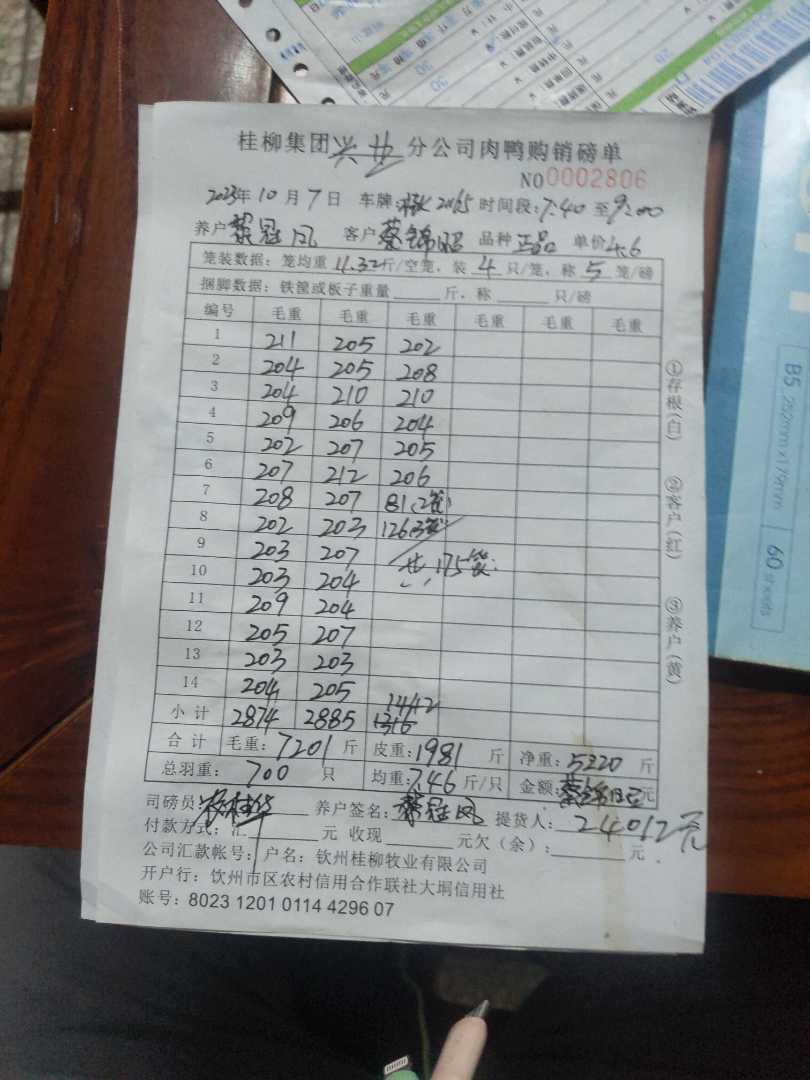 桂柳集团兴业分公司肉鸭购销磅单
NO0002806
2023年10月7日 车牌: 2065 时间段:7:40至9:00
养户 蔡冠凤 客户 蔡锦昭 品种 正品 单价4.6
笼装数据: 笼均重 11.32斤/空笼, 装 4 只/笼, 称 5 笼/磅
捆脚数据: 铁篼或板子重量 斤, 称 只/磅
编号 毛重 毛重 毛重 毛重 毛重 毛重
1 211 205 202
2 204 205 208
3 204 210 210
4 209 206 204
5 202 207 205
6 207 212 206
7 208 207 81(2笼)
8 202 203 126(3笼)
9 203 207
共175笼
10 203 204
11 209 204
12 205 207
13 203 203
14 204 205
1442
小计 2874 2885 1316
合计 毛重: 7201 斤 皮重: 1981 斤 净重: 5220 斤
总羽重: 700 只 均重: 7.46 斤/只 金额: 蔡锦昭 元
司磅员: 养户签名: 蔡冠凤 提货人: 24012元
付款方式: 汇 元 收现 元欠(余): 元
公司汇款帐号: 户名: 钦州桂柳牧业有限公司
开户行: 钦州市区农村信用合作联社大垌信用社
账号: 8023 1201 0114 4296 07
①存根(白)
②客户(红)
③养户(黄)
B5 252mm×179mm
60 sheets